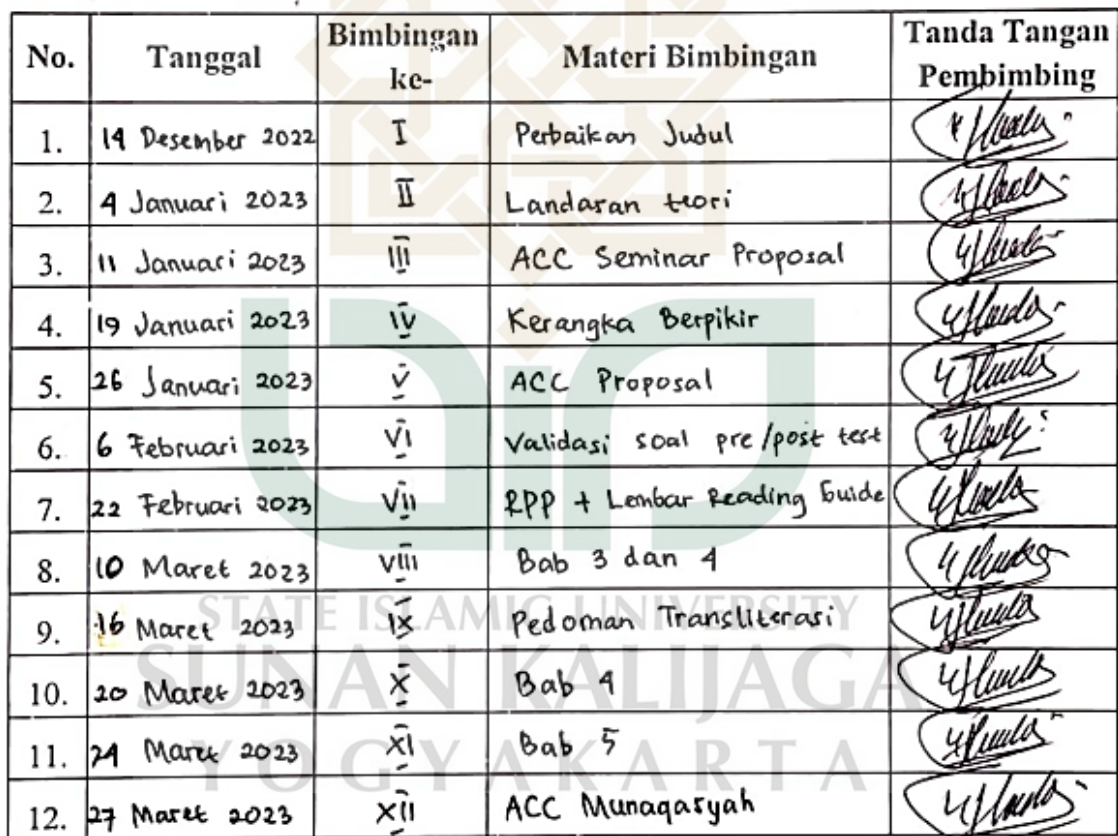 No. Tanggal Bimbingan ke- Materi Bimbingan Tanda Tangan Pembimbing
1. 14 Desember 2022 I Perbaikan Judul
2. 4 Januari 2023 II Landasan teori
3. 11 Januari 2023 III ACC Seminar Proposal
4. 19 Januari 2023 IV Kerangka Berpikir
5. 26 Januari 2023 V ACC Proposal
6. 6 Februari 2023 VI Validasi soal pre/post test
7. 22 Februari 2023 VII RPP + Lembar Reading Guide
8. 10 Maret 2023 VIII Bab 3 dan 4
9. 16 Maret 2023 IX Pedoman Transliterasi
10. 20 Maret 2023 X Bab 4
11. 24 Maret 2023 XI Bab 5
12. 27 Maret 2023 XII ACC Munaqasyah
STATE ISLAMIC UNIVERSITY
SUNAN KALIJAGA
YOGYAKARTA